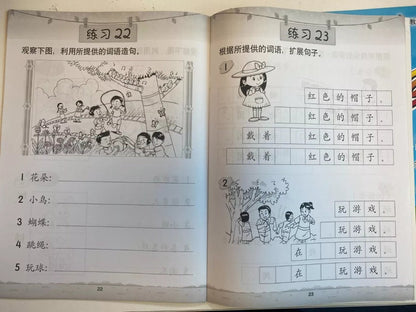 练习 22
观察下图，利用所提供的词语造句。
1 花朵:
2 小鸟:
3 蝴蝶:
4 跳绳:
5 玩球:
22
练习 23
根据所提供的词语，扩展句子。
1
红色的帽子.
戴着红色的帽子.
戴着红色的帽子.
2
玩游戏.
在玩游戏.
在玩游戏.
23